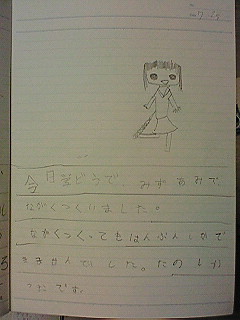 今日学どうで、みずあみで、
ながくつくりました。
ながくつくってもはんぶんしかで
きませんでした。たのしか
ったです。